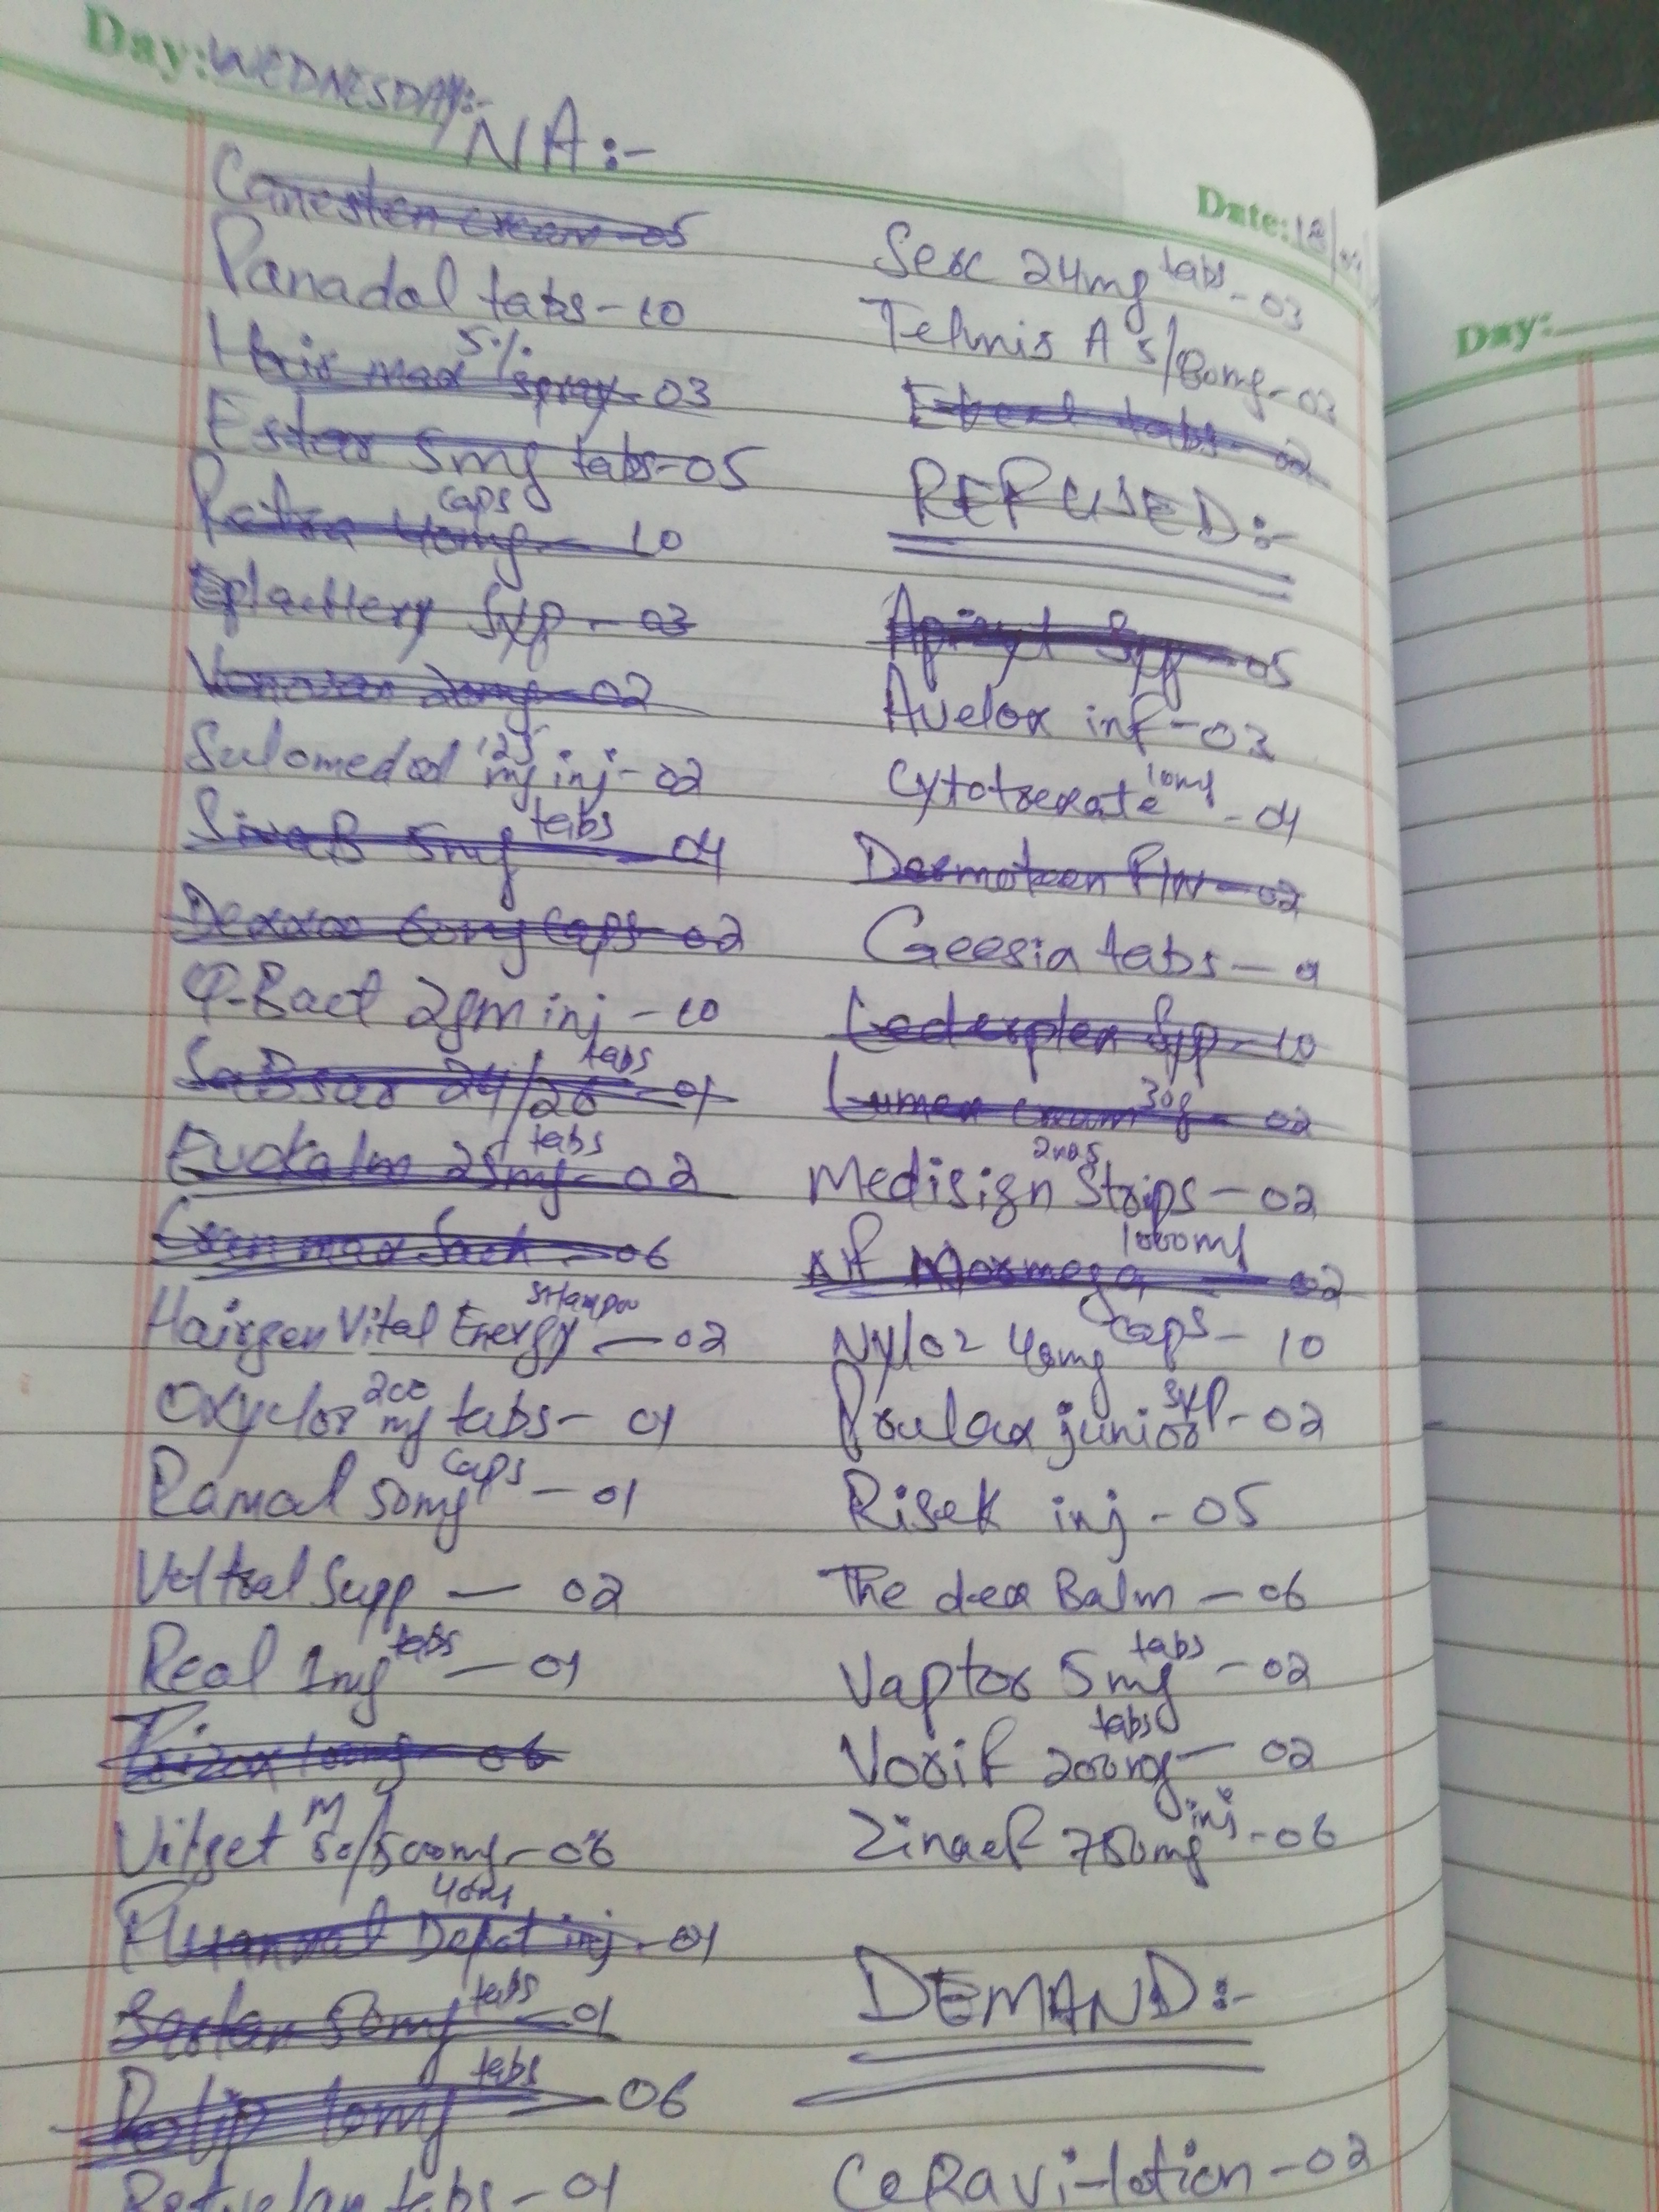 Day: WEDNESDAY:-
NA:-
Date: 18/
Canesten cream - 05
Panadol tabs - 10
Hair max 5% spray - 03
Estar 5mg tabs - 05
40mg caps - 10
syp - 03
20mg - 02
Solomedol 125 mg inj - 02
5mg tabs - 04
60mg caps - 02
Q-Bact 2gm inj - 10
SaBsar 24/26 tabs - 01
Evokalm 25mg tabs - 02
Cranmax Sach - 06
Hairgen Vital Energy SHampoo - 02
Oxyclor 200 mg tabs - 01
Ramal 50mg caps - 01
Voltral Supp - 02
Real 1mg tabs - 01
100mg - 06
Vilget M 50/500mg - 06
Depot inj - 01
50mg tabs - 01
10mg tabs - 06
tabs - 01
Serc 24mg tabs - 03
Telmis A 5/80mg - 03
tabs - 02
REFUSED:-
Syp - 05
Avelox inf - 03
Cytotrexate 10mg - 04
Dermoteen F/W - 02
Geesia tabs - 9
Lederplex Syp - 10
Lumex cream 30g - 02
Medisign 2nos Strips - 02
NF Maxmega 1000mg - 02
Nyloz 40mg caps - 10
Prulax junior syp - 02
Risek inj - 05
The dex Balm - 06
Vaptor 5mg tabs - 02
Voxif 200mg tabs - 02
Zinacef 750mg inj - 06
DEMAND:-
CeRavi-lotion - 02
Day: